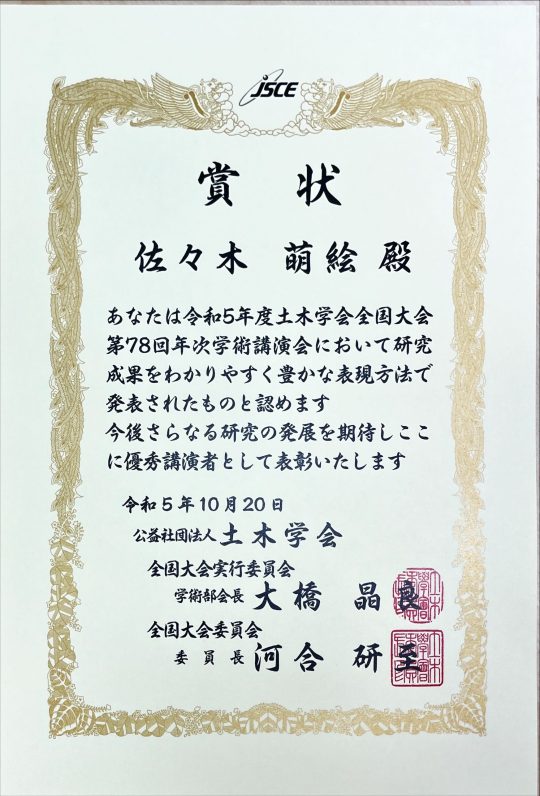 JSCE
賞状
佐々木 萌絵 殿
あなたは令和5年度土木学会全国大会
第78回年次学術講演会において研究
成果をわかりやすく豊かな表現方法で
発表されたものと認めます
今後さらなる研究の発展を期待しここ
に優秀講演者として表彰いたします
令和5年10月20日
公益社団法人 土木学会
全国大会実行委員会
学術部会長 大橋 晶良
全国大会委員会
委員長 河合 研至